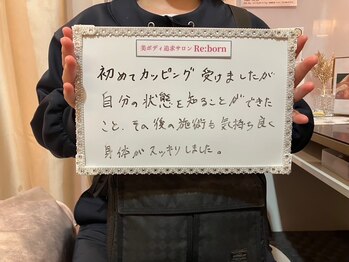 美ボディ追求サロン Re:born
初めてカッピング受けましたが
自分の状態を知ることができた
こと、その後の施術も気持ち良く
身体がスッキリしました。